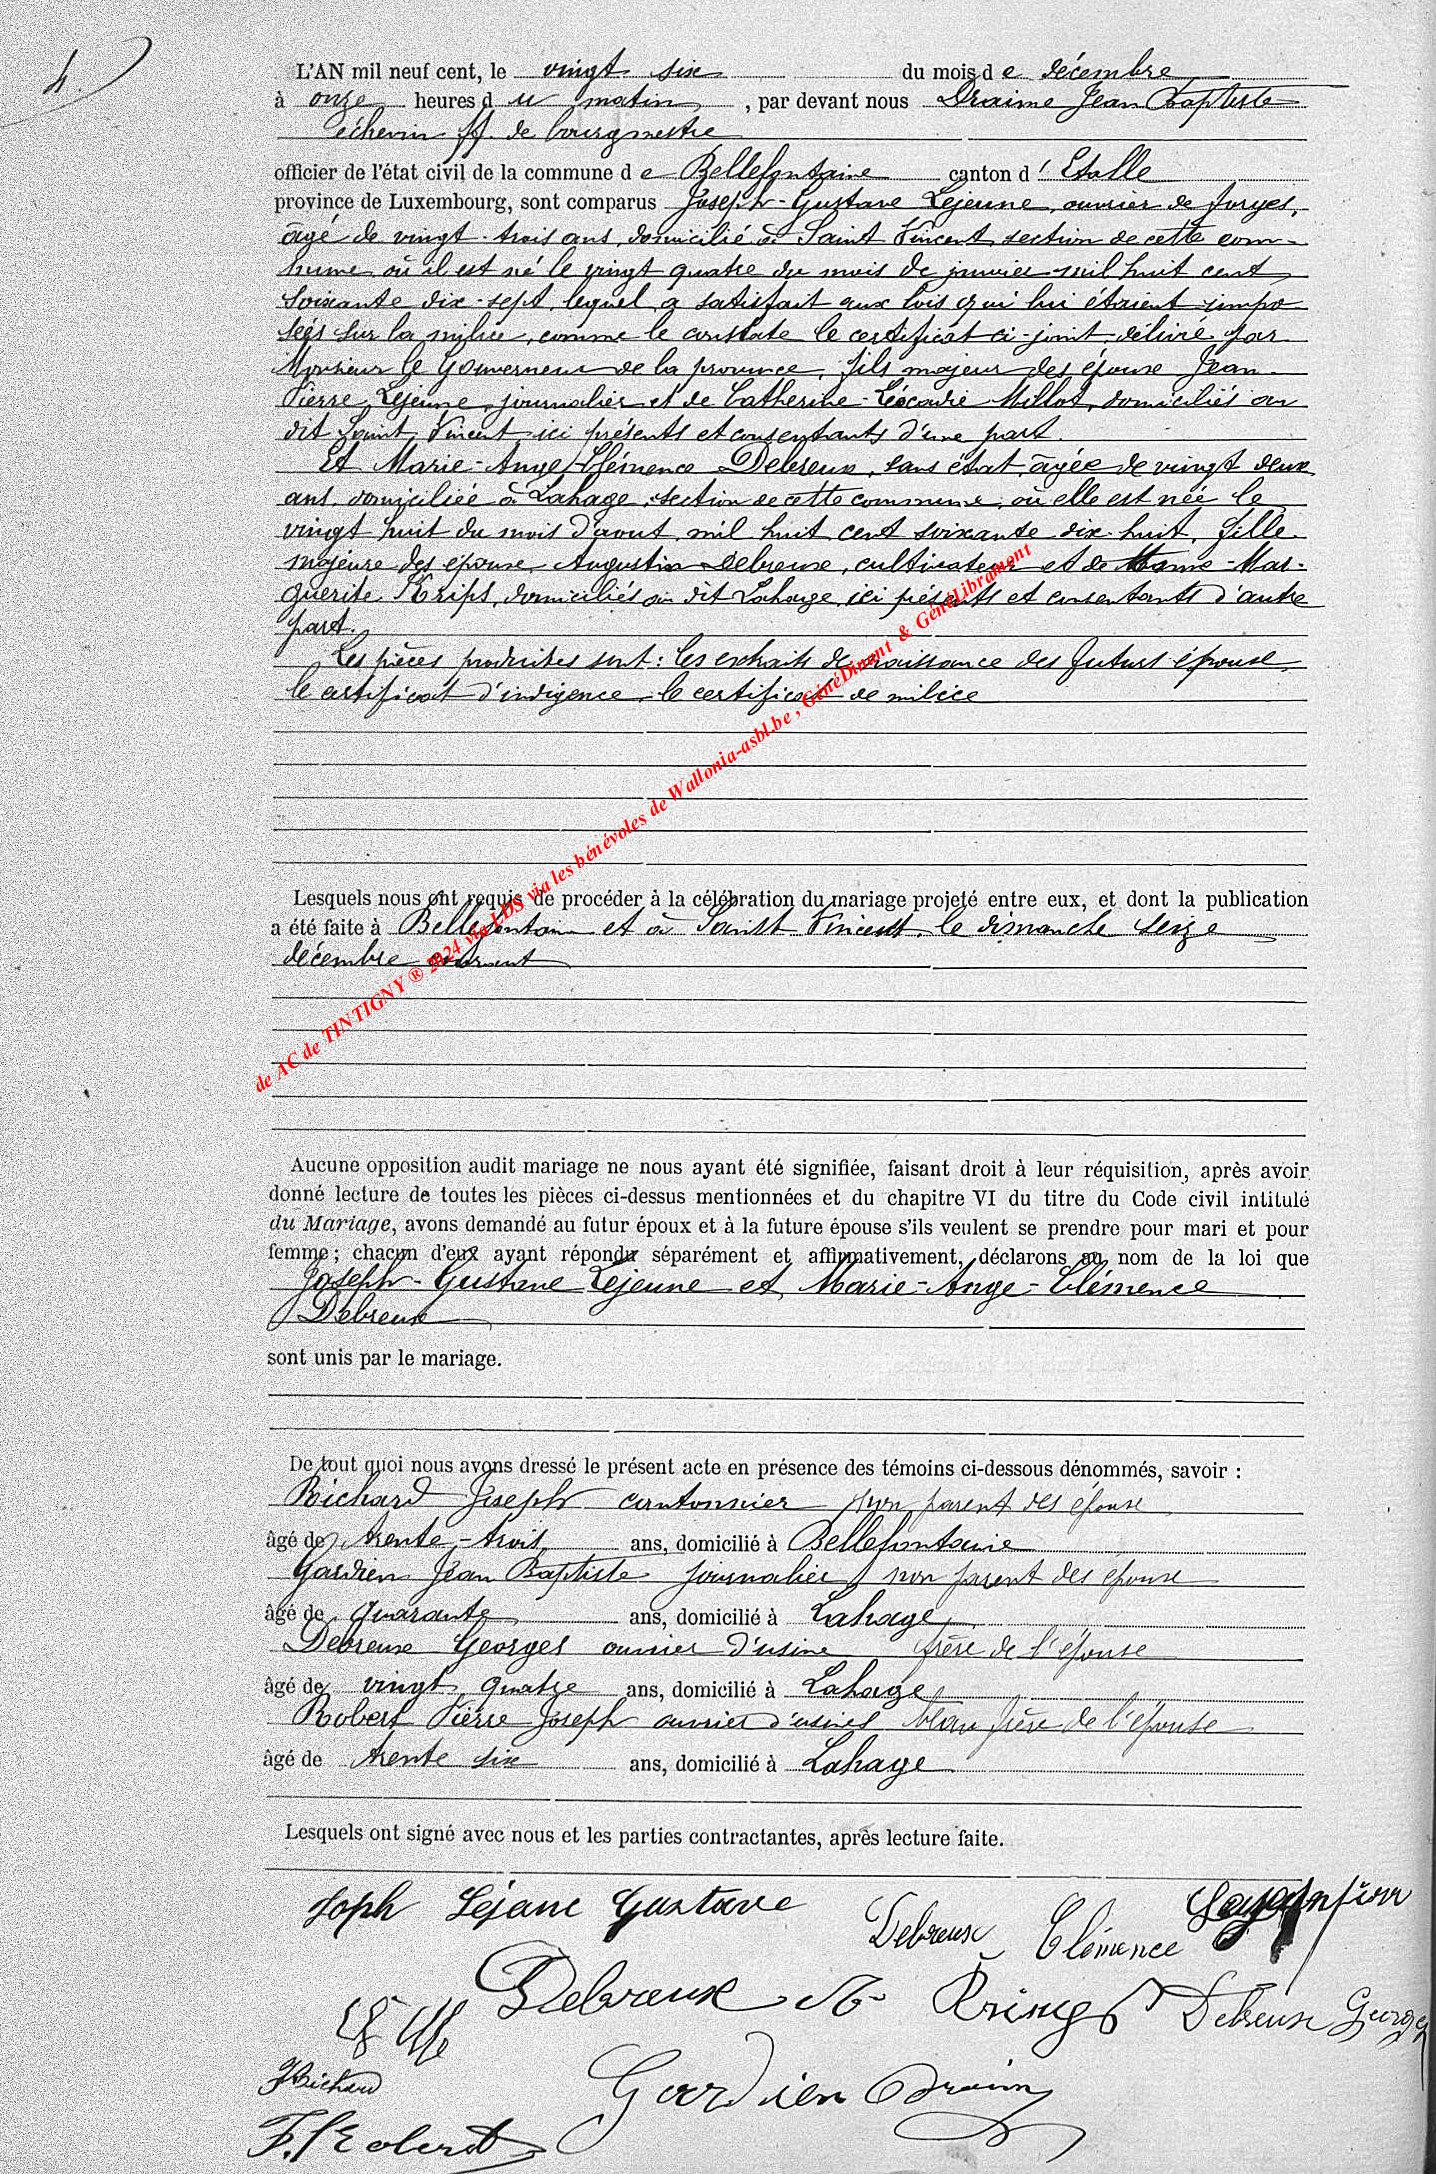 4.
L'AN mil neuf cent, le vingt six du mois de décembre
à onze heures du matin, par devant nous Draime Jean Baptiste
échevin ff. de bourgmestre
officier de l'état civil de la commune de Bellefontaine canton d'Etalle
province de Luxembourg, sont comparus Joseph-Gustave Lejeune, ouvrier de forges,
âgé de vingt-trois ans, domicilié à Saint Vincent, section de cette com-
mune où il est né le vingt quatre du mois de janvier mil huit cent
soixante dix-sept, lequel a satisfait aux lois qui lui étaient impo-
sées sur la milice, comme le constate le certificat ci-joint délivré par
Monsieur le Gouverneur de la province, fils majeur des époux Jean-
Pierre Lejeune, journalier et de Catherine-Léocadie Millot, domiciliés au
dit Saint Vincent, ici présents et consentants d'une part.
Et Marie-Ange-Clémence Debreux, sans état, âgée de vingt deux
ans, domiciliée à Lahage, section de cette commune, où elle est née le
vingt huit du mois d'aout mil huit cent soixante dix-huit, fille
majeure des époux Augustin Debreux, cultivateur et de Marie-Mar-
guerite Krips, domiciliés au dit Lahage, ici présents et consentants d'autre
part.
Les pièces produites sont : les extraits de naissance des futurs époux
le certificat d'indigence, le certificat de milice
Lesquels nous ont requis de procéder à la célébration du mariage projeté entre eux, et dont la publication
a été faite à Bellefontaine et à Saint Vincent, le dimanche seize
décembre courant
Aucune opposition audit mariage ne nous ayant été signifiée, faisant droit à leur réquisition, après avoir
donné lecture de toutes les pièces ci-dessus mentionnées et du chapitre VI du titre du Code civil intitulé
du Mariage, avons demandé au futur époux et à la future épouse s'ils veulent se prendre pour mari et pour
femme ; chacun d'eux ayant répondu séparément et affirmativement, déclarons au nom de la loi que
Joseph-Gustave Lejeune et Marie-Ange-Clémence
Debreux
sont unis par le mariage.
De tout quoi nous avons dressé le présent acte en présence des témoins ci-dessous dénommés, savoir :
Richard Joseph cantonnier non parent des époux
âgé de trente-trois ans, domicilié à Bellefontaine
Gardien Jean Baptiste journalier non parent des époux
âgé de quarante ans, domicilié à Lahage
Debreux Georges ouvrier d'usine frère de l'épouse
âgé de vingt quatre ans, domicilié à Lahage
Robert Pierre Joseph ouvrier d'usines beau frère de l'épouse
âgé de trente six ans, domicilié à Lahage
Lesquels ont signé avec nous et les parties contractantes, après lecture faite.
Joseph Lejeune Gustave
Debreux Clémence
Debreux
Debreux Georges
J Richard
Gardien Draime
Robert
de AC de TINTIGNY ® 2024 via LDS via les bénévoles de Wallonia-asbl.be , GénéDinant & GénéLibramont